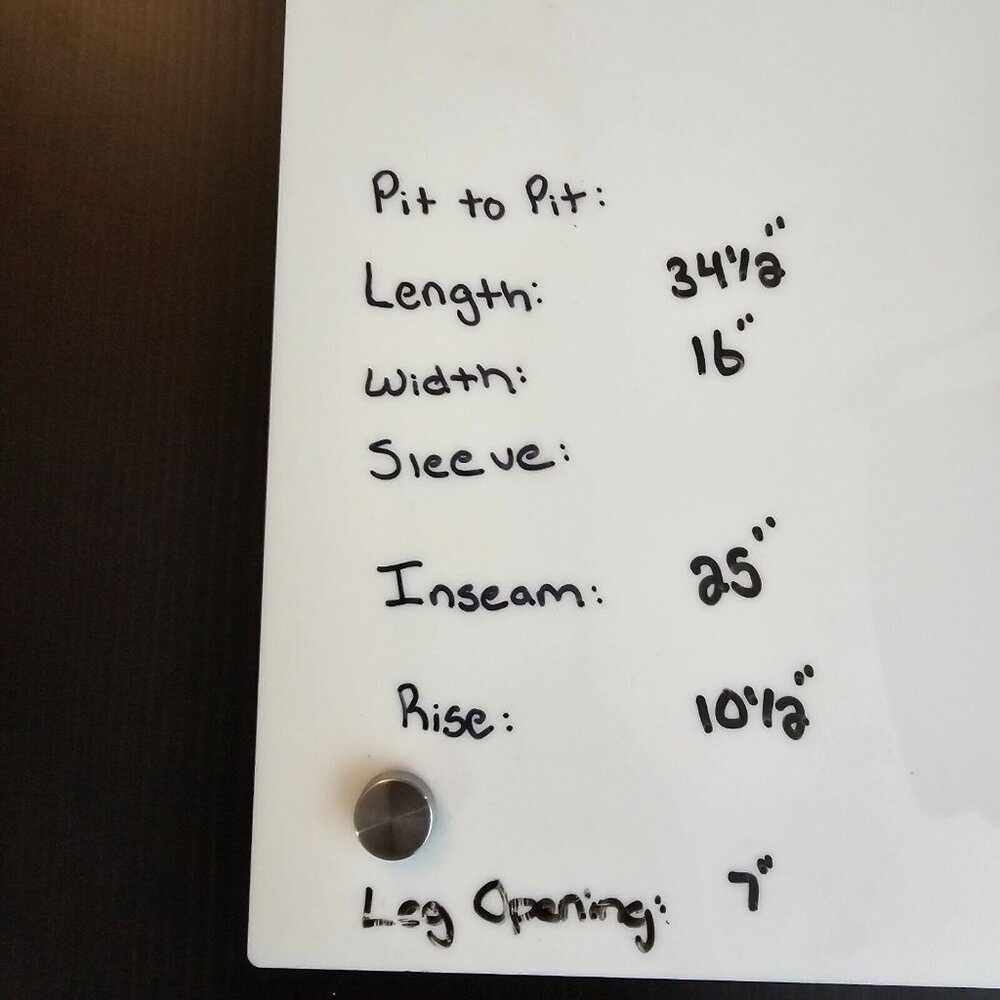 Pit to Pit:
Length: 34 1/2"
Width: 16"
Sleeve:
Inseam: 25"
Rise: 10 1/2"
Leg Opening: 7"